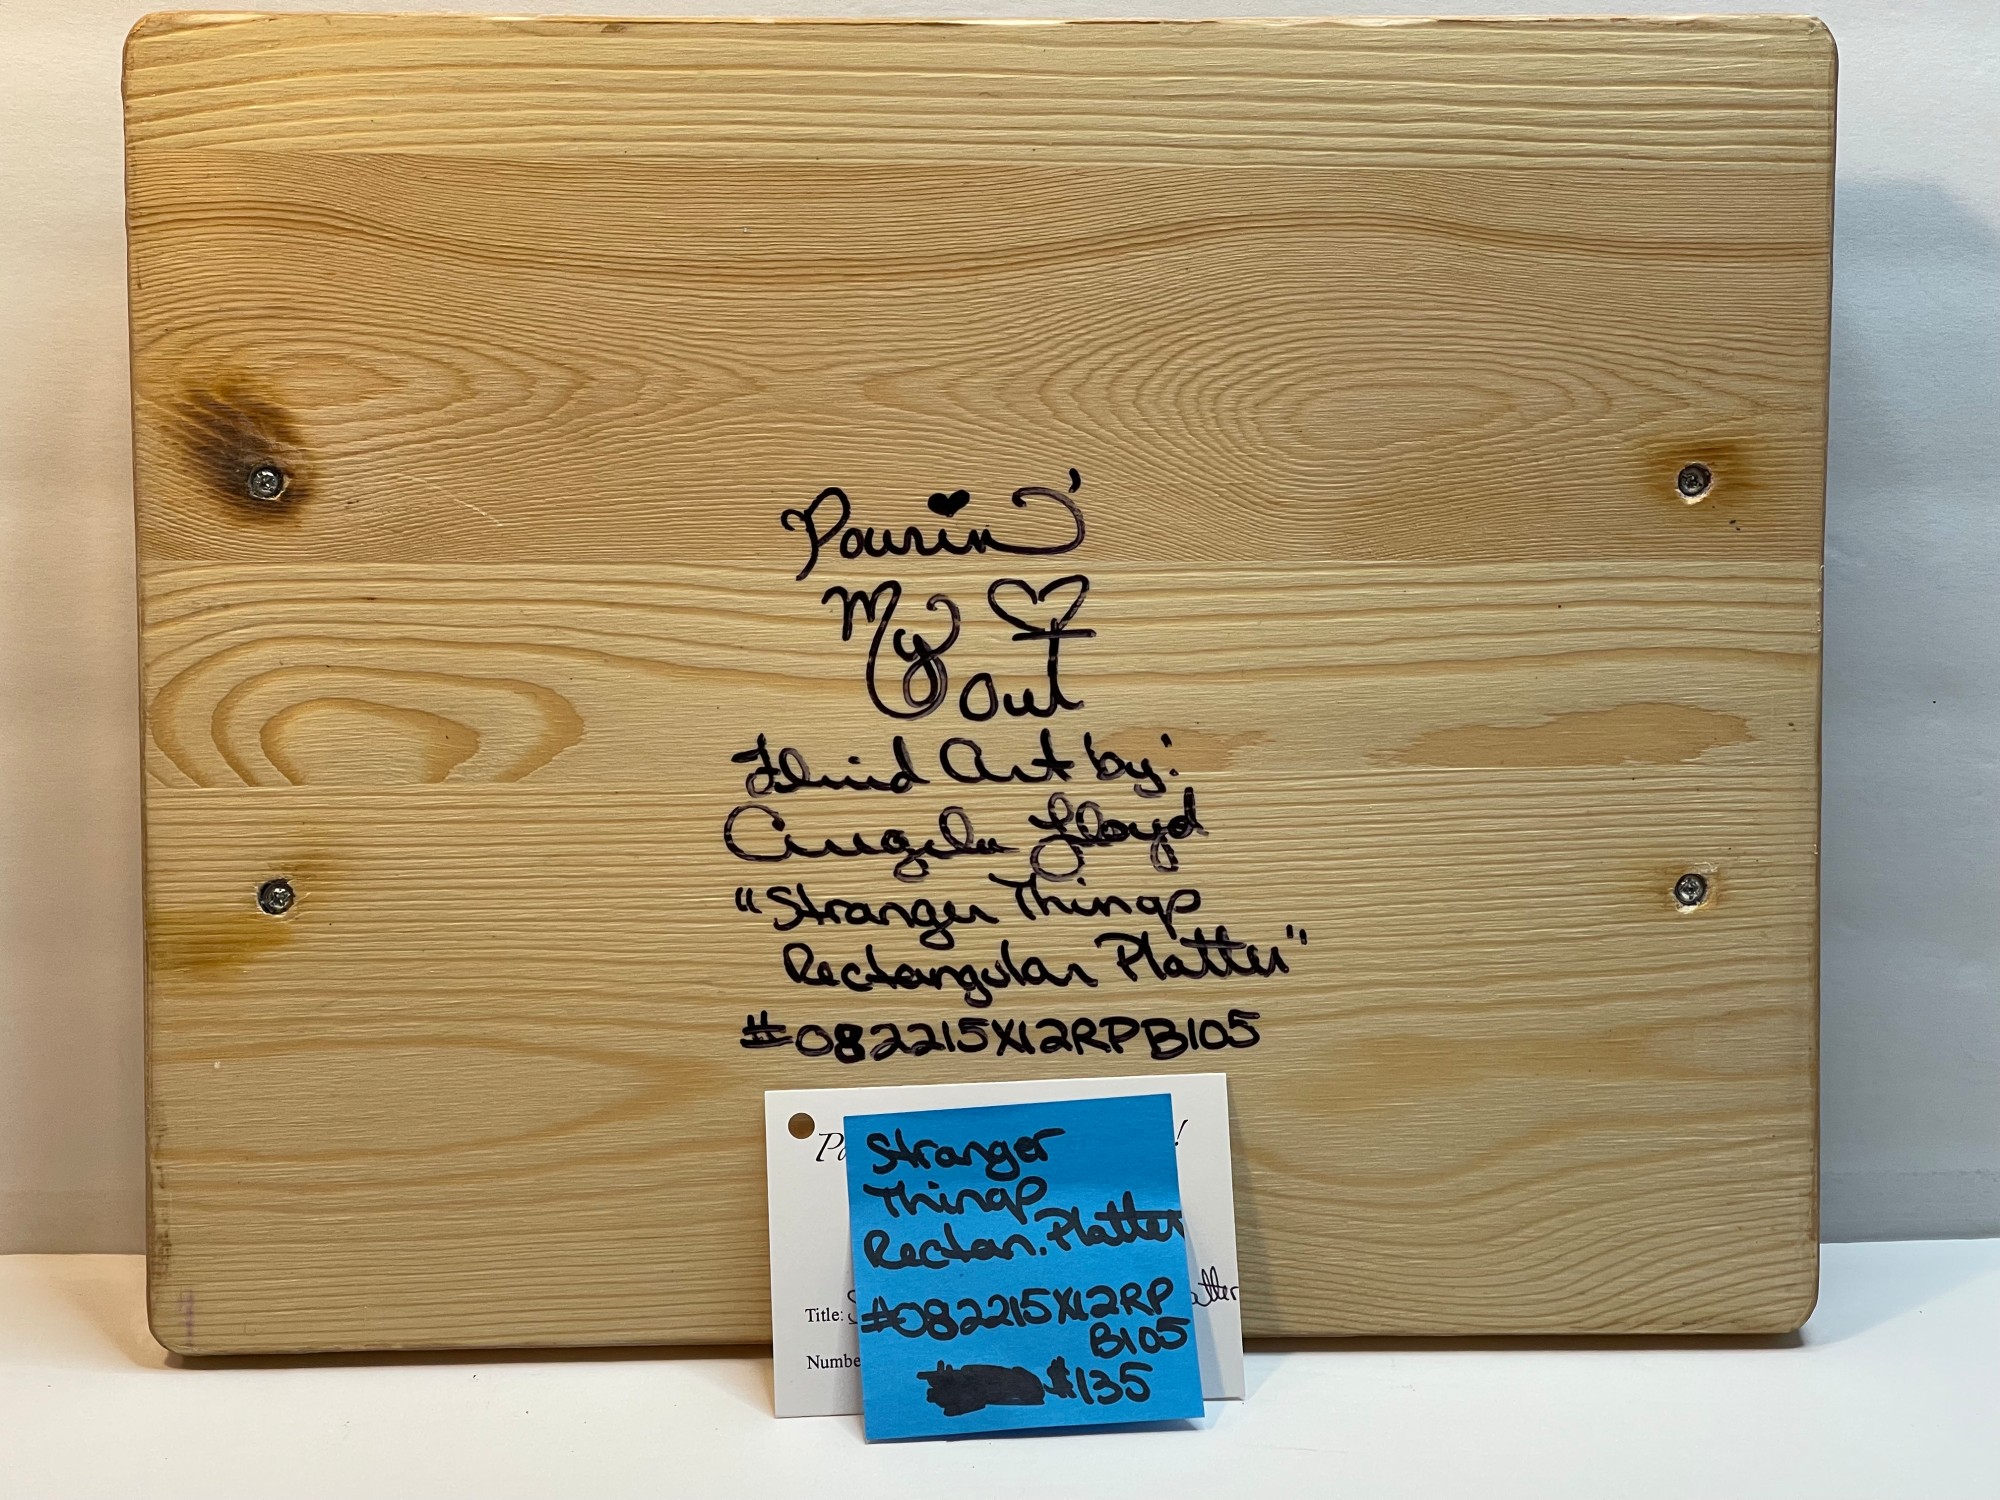 Pourin'
My ♡
Out
Fluid Art by:
Angela Lloyd
"Stranger Things
Rectangular Platter"
#082215X12RPB105
P !
Stranger
Things
Rectan. Platter
#082215X12RP
B105
$135
Title: S atter
Numbe